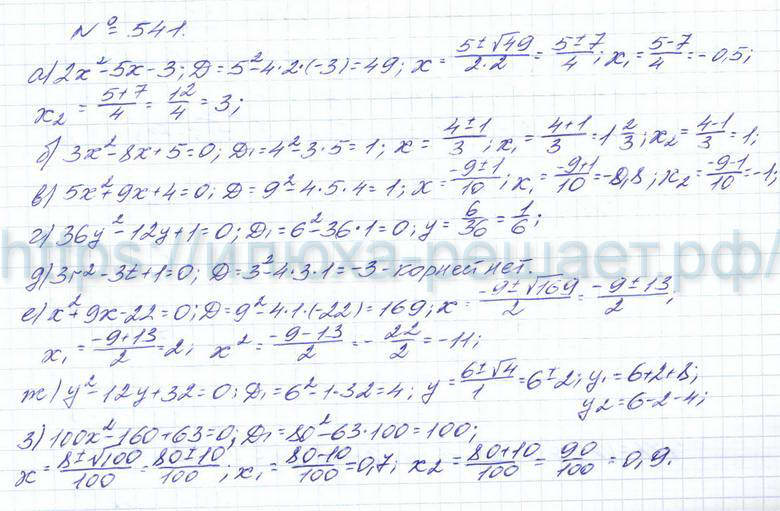 № 541.
а) 2x²-5x-3; D=5²-4·2·(-3)=49; x=(5±√49)/(2·2)=(5±7)/4; x₁=(5-7)/4=-0,5;
x₂=(5+7)/4=12/4=3;
б) 3x²-8x+5=0; D₁=4²-3·5=1; x=(4±1)/3; x₁=(4+1)/3=1 2/3; x₂=(4-1)/3=1;
в) 5x²+9x+4=0; D=9²-4·5·4=1; x=(-9±1)/10; x₁=(-9+1)/10=-0,8; x₂=(-9-1)/10=-1;
г) 36y²-12y+1=0; D₁=6²-36·1=0; y=6/36=1/6;
https://илюха-решает.рф/
д) 3t²-3t+1=0; D=3²-4·3·1=-3-корней нет.
е) x²+9x-22=0; D=9²-4·1·(-22)=169; x=(-9±√169)/2=(-9±13)/2;
x₁=(-9+13)/2=2; x²=(-9-13)/2=-22/2=-11;
ж) y²-12y+32=0; D₁=6²-1·32=4; y=(6±√4)/1=6±2; y₁=6+2+8;
y2=6-2-4;
з) 100x²-160+63=0; D₁=80²-63·100=100;
x=(8±√100)/100=(80±10)/100; x₁=(80-10)/100=0,7; x2=(80+10)/100=90/100=0,9.